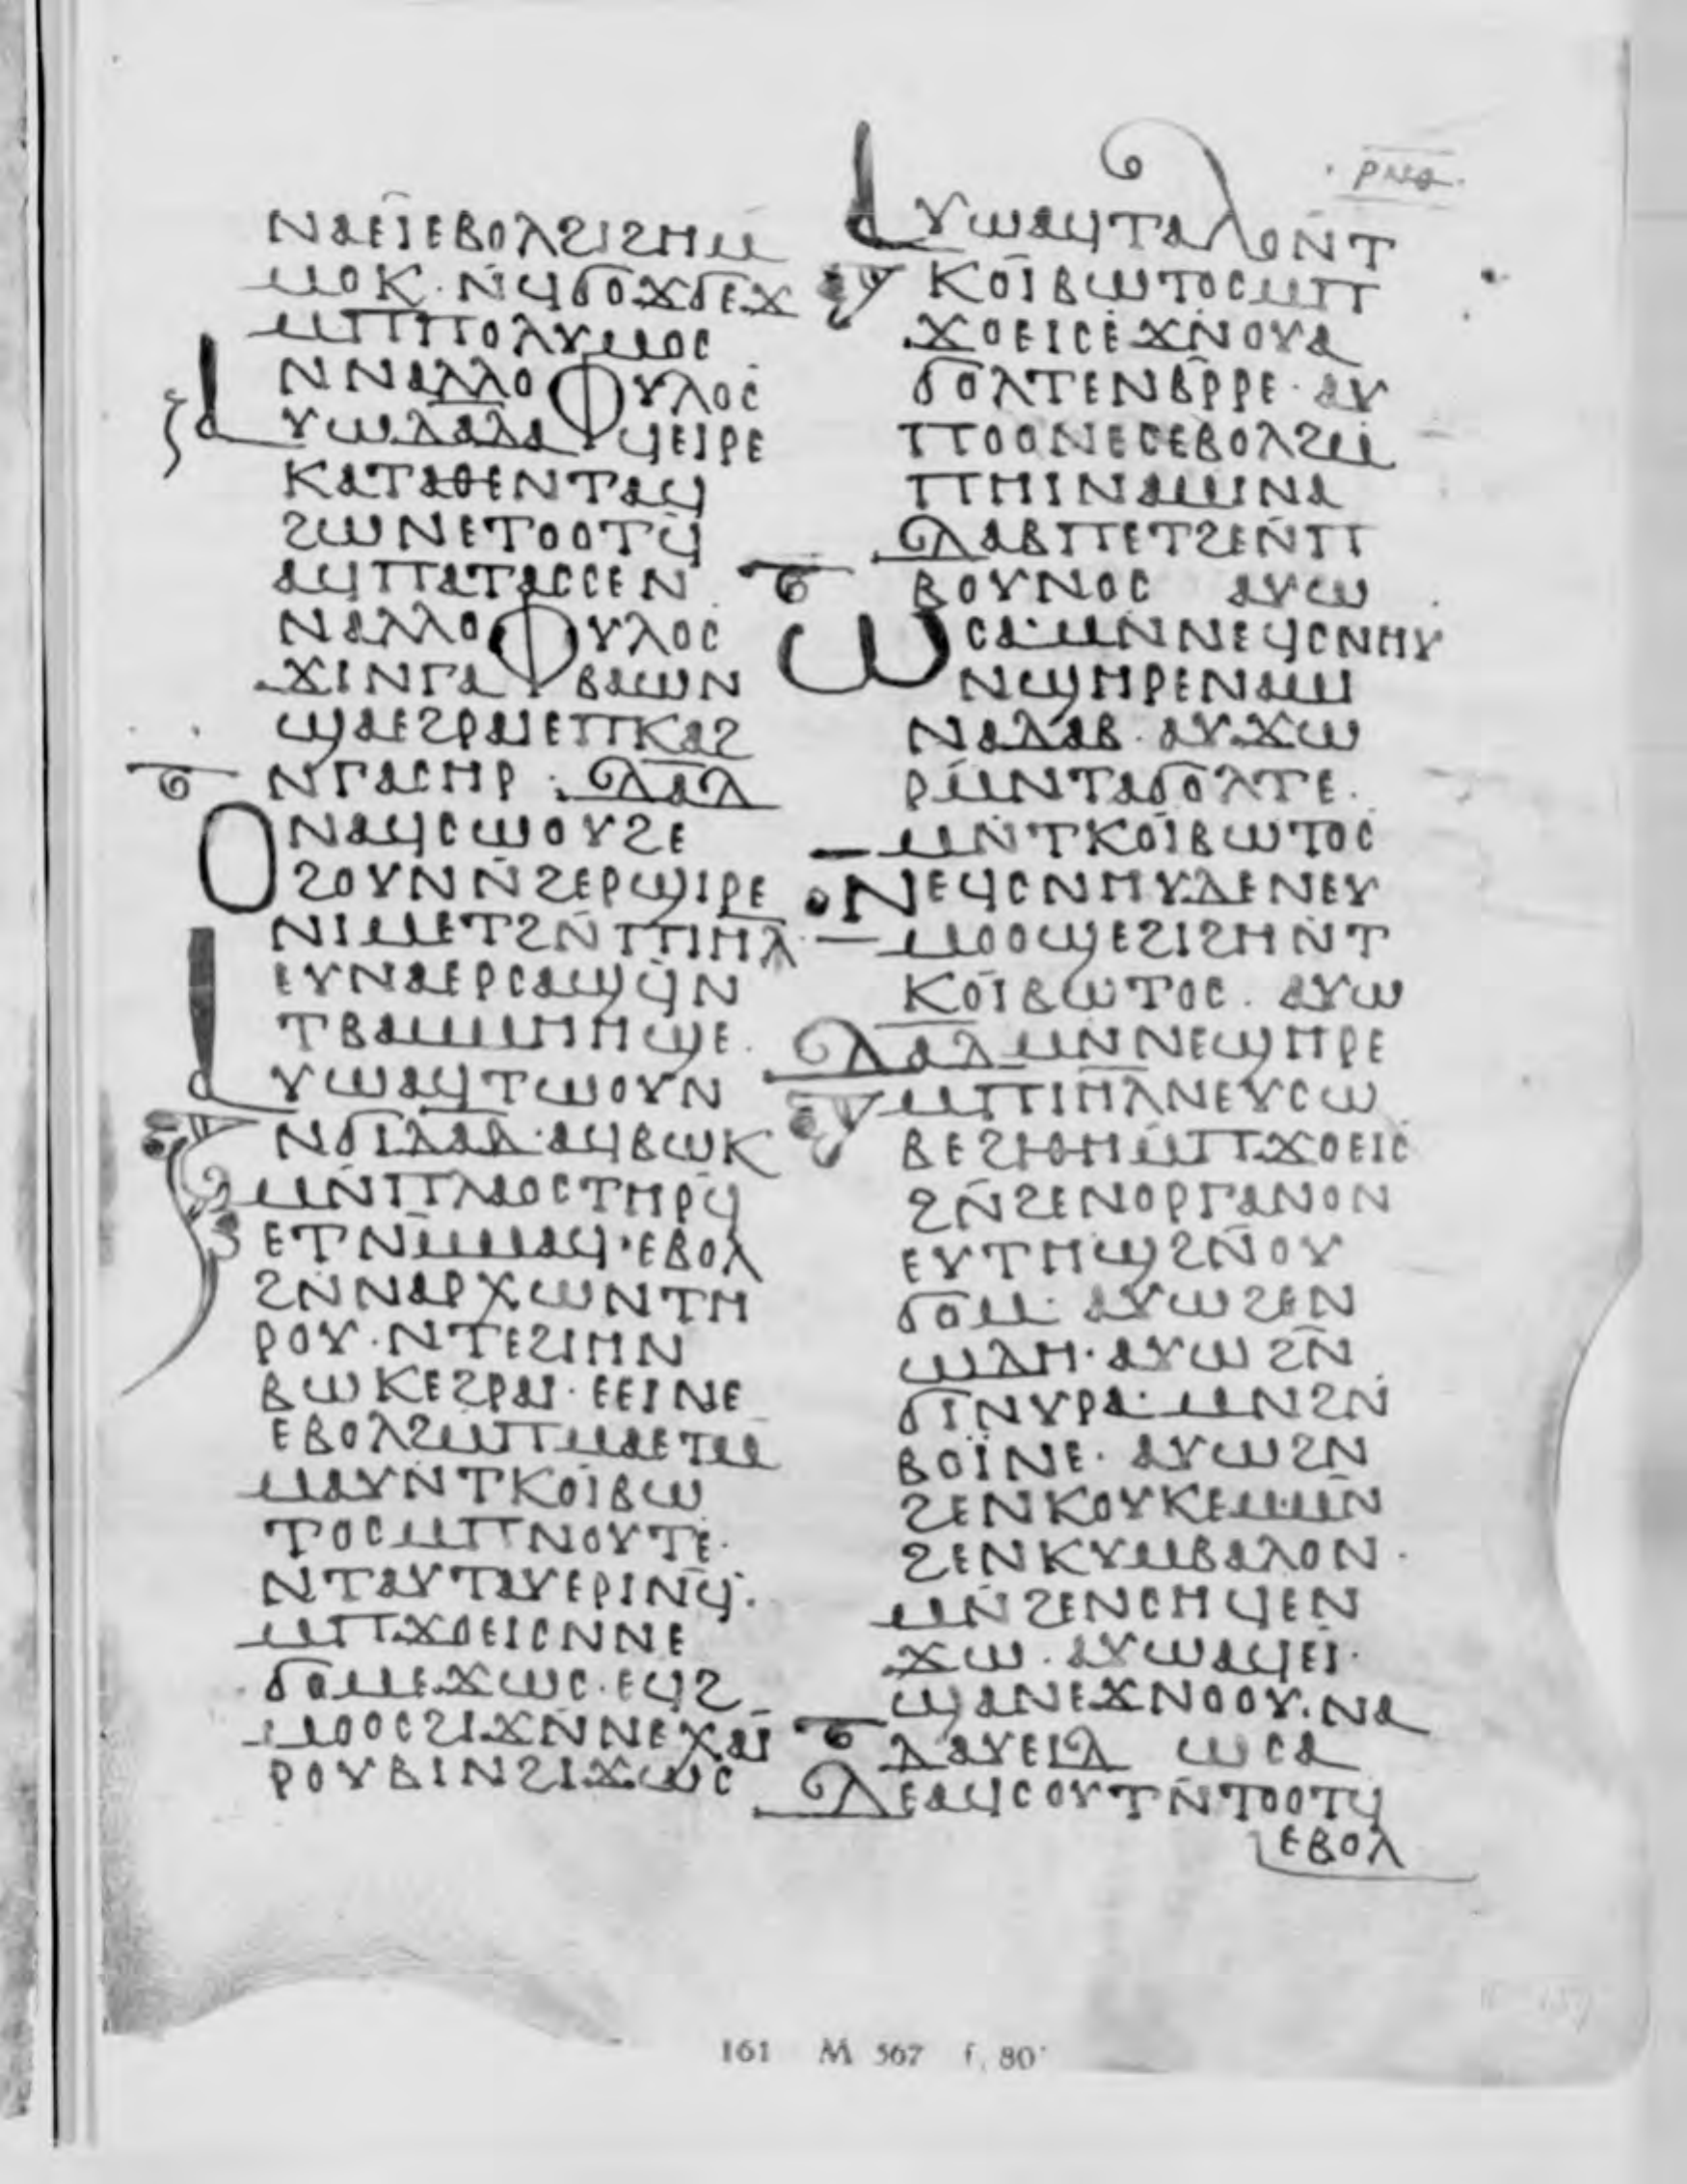 ⲣⲛⲑ
ⲛⲁⲉⲓⲉⲃⲟⲗϩⲓϩⲏⲙ
ⲙⲟⲕ·ⲛ̄ϥϭⲟϫϭⲉϫ
ⲙⲡⲡⲟⲗⲩⲙⲟⲥ
ⲛⲛⲁⲗⲗⲟⲫⲩⲗⲟⲥ
ⲁⲩⲱⲇⲁⲇⲁϥⲉⲓⲣⲉ
ⲕⲁⲧⲁⲑⲉⲛⲧⲁϥ
ϩⲱⲛⲉⲧⲟⲟⲧϥ̄
ⲁϥⲡⲁⲧⲁⲥⲥⲉⲛ
ⲛⲁⲗⲗⲟⲫⲩⲗⲟⲥ
ϫⲓⲛⲅⲁⲃⲁⲱⲛ
ϣⲁⲉϩⲣⲁⲓⲉⲡⲕⲁϩ
ⲛⲅⲁⲥⲏⲣ·ⲇⲁⲇ
ⲟⲛⲁϥⲥⲱⲟⲩϩⲉ
ϩⲟⲩⲛⲛ̄ϩⲉⲣϣⲓⲣⲉ
ⲛⲓⲙⲉⲧϩⲛ̄ⲡⲓⲏⲗ
ⲉⲩⲛⲁⲉⲣⲥⲁϣϥ̄ⲛ
ⲧⲃⲁⲙⲙⲏⲏϣⲉ
ⲁⲩⲱⲁϥⲧⲱⲟⲩⲛ
ⲛϭⲓⲇⲁⲇ·ⲁϥⲃⲱⲕ
ⲙⲛ̄ⲡⲗⲁⲟⲥⲧⲏⲣϥ̄
ⲉⲧⲛ̄ⲙⲙⲁϥ·ⲉⲃⲟⲗ
ϩⲛ̄ⲛⲁⲣⲭⲱⲛⲧⲏ
ⲣⲟⲩ·ⲛⲧⲉϩⲓⲏⲛ
ⲃⲱⲕⲉϩⲣⲁⲓ·ⲉⲉⲓⲛⲉ
ⲉⲃⲟⲗϩⲙⲡⲙⲁⲉⲧⲙ
ⲙⲁⲩⲛⲧⲕⲟⲓⲃⲱ
ⲧⲟⲥⲙⲡⲛⲟⲩⲧⲉ·
ⲛⲧⲁⲩⲧⲁⲩⲉⲣⲓⲛϥ̄·
ⲙⲡϫⲟⲉⲓⲥⲛⲛⲉ
ϭⲟⲙⲉϫⲱⲥ·ⲉϥϩ
ⲙⲟⲟⲥϩⲓϫⲛ̄ⲛⲉⲭⲁⲓ
ⲣⲟⲩⲃⲓⲛϩⲓϫⲱⲥ
ⲁⲩⲱⲁϥⲧⲁⲗⲟⲛ̄ⲧ
ⲕⲟⲓⲃⲱⲧⲟⲥⲙⲡ
ϫⲟⲉⲓⲥⲉϫⲛ̄ⲟⲩⲁ
ϭⲟⲗⲧⲉⲛⲃ̄ⲣⲣⲉ·ⲁⲩ
ⲡⲟⲟⲛⲉⲥⲉⲃⲟⲗϩⲙ
ⲡⲏⲓⲛⲁⲙⲓⲛⲁ
ⲇⲁⲃⲡⲉⲧϩⲉⲛ̄ⲡ
ⲃⲟⲩⲛⲟⲥ ⲁⲩⲱ
ⲱⲥⲁ·ⲙⲛⲛⲉϥⲥⲛⲏⲩ
ⲛϣⲏⲣⲉⲛⲁⲙⲓ
ⲛⲁⲇⲁⲃ·ⲁⲩϫⲱ
ⲣⲙ̄ⲛⲧⲁϭⲟⲗⲧⲉ·
ⲙⲛ̄ⲧⲕⲟⲓⲃⲱⲧⲟⲥ
ⲛⲉϥⲥⲛⲏⲩⲇⲉⲛⲉⲩ
ⲙⲟⲟϣⲉϩⲓϩⲏⲛ̄ⲧ
ⲕⲟⲓⲃⲱⲧⲟⲥ·ⲁⲩⲱ
ⲇⲁⲇⲙⲛⲛⲉϣⲏⲣⲉ
ⲙⲡⲓⲏⲗⲛⲉⲩⲥⲱ
ⲃⲉϩⲓⲑⲏⲙⲡϫⲟⲉⲓⲥ
ϩⲛ̄ϩⲉⲛⲟⲣⲅⲁⲛⲟⲛ
ⲉⲩⲧⲏϣϩⲛ̄ⲟⲩ
ϭⲟⲙ·ⲁⲩⲱϩⲉⲛ
ⲱⲇⲏ·ⲁⲩⲱϩⲛ̄
ϭⲓⲛⲩⲣⲁ·ⲙⲛϩⲛ
ⲃⲟⲓ̈ⲛⲉ·ⲁⲩⲱϩⲛ
ϩⲉⲛⲕⲟⲩⲕⲉⲙⲙⲛ̄
ϩⲉⲛⲕⲩⲙⲃⲁⲗⲟⲛ·
ⲙⲛ̄ϩⲉⲛⲥⲏϥⲉⲛ
ϫⲱ·ⲁⲩⲱⲁϥⲉⲓ·
ϣⲁⲛⲉϫⲛⲟⲟⲩ·ⲛⲁ
ⲇⲁⲩⲉⲓⲇ ⲱⲥⲁ
ⲇⲉⲁϥⲥⲟⲩⲧⲛ̄ⲧⲟⲟⲧϥ
ⲉⲃⲟⲗ
161 M 567 f. 80